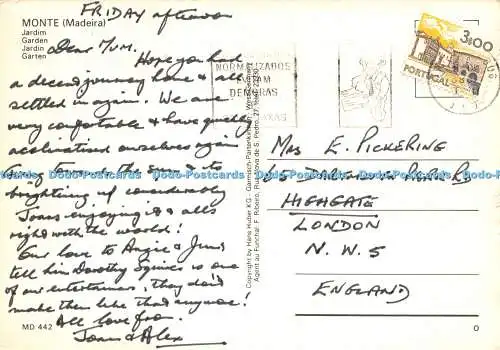 FRIDAY afternoon
MONTE (Madeira)
Jardim
Garden
Jardin
Garten
Dear Mum.
Hope you had
a decent journey home & all
settled in again. We are
very comfortable & have quickly
acclimatised ourselves again
from the sun & is
brightening up considerably
Joan's enjoying it & all's
right with the world!
Our love to Angie & June
tell him Dorothy Squires is one
of our entertainers, they don't
make them like that anymore!
All love from
Joan & Alex
MD 442
Copyright by Hans Huber KG - Garmisch-Partenkirchen
Agent au Funchal: F. Ribeiro, Rua Nova de S. Pedro, 27
NORMALIZADOS
3$00
PORTUGAL
MRS E. PICKERING
HIGHGATE
LONDON
N.W.5
ENGLAND
0
Dodo-Postcards Dodo-Postcards Dodo-Postcards Dodo-Postcards Dodo-Postcards